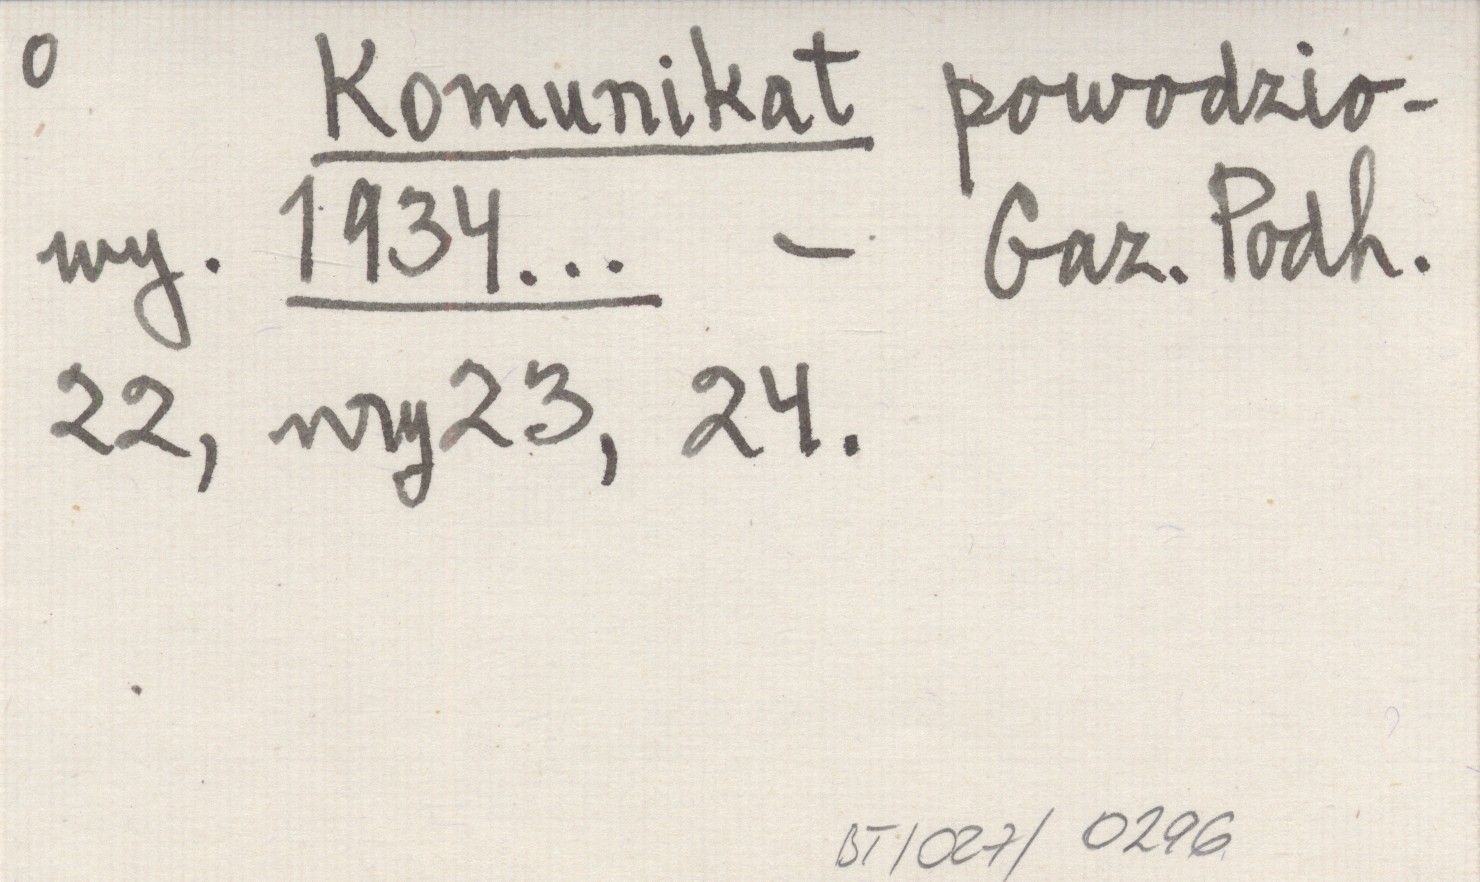 o Komunikat powodzio-
wy. 1934... – Gaz. Podh.
22, nry 23, 24.
BT/027/ 0296